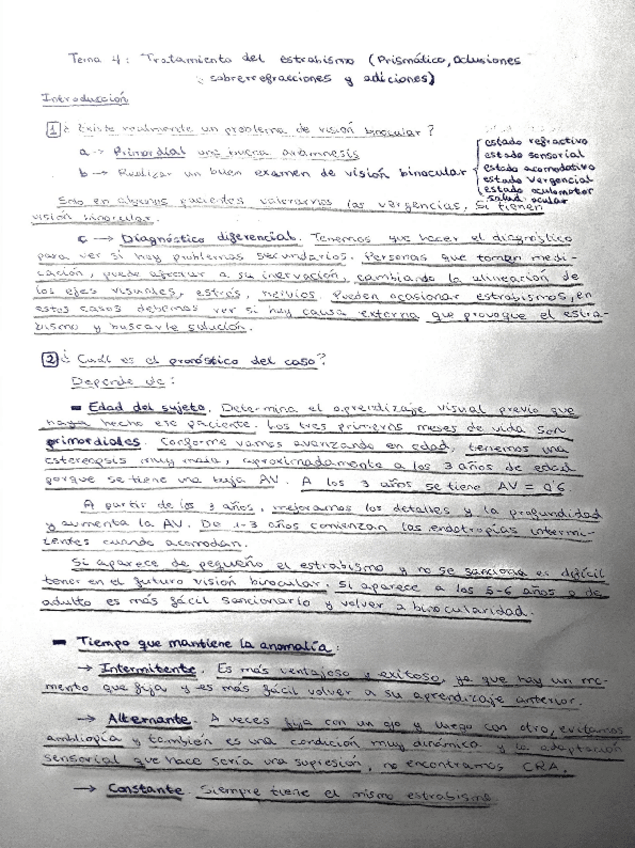 Tema 4: Tratamiento del estrabismo (Prismático, oclusiones
sobrerrefracciones y adiciones)
Introducción
1 ¿Existe realmente un problema de visión binocular?
a → Primordial una buena anamnesis
b → Realizar un buen examen de visión binocular
estado refractivo
estado sensorial
estado acomodativo
estado vergencial
estado oculomotor
salud ocular
Solo en algunos pacientes valoraremos las vergencias, si tienen
visión binocular.
c → Diagnóstico diferencial. Tenemos que hacer el diagnóstico
para ver si hay problemas secundarios. Personas que toman medi-
cación, puede afectar a su inervación, cambiando la alineación de
los ejes visuales, estrés, nervios. Pueden ocasionar estrabismos, en
estos casos debemos ver si hay causa externa que provoque el estra-
bismo y buscarle solución.
2 ¿Cuál es el pronóstico del caso?
Depende de:
- Edad del sujeto. Determina el aprendizaje visual previo que
haya hecho ese paciente. Los tres primeros meses de vida son
primordiales. Conforme vamos avanzando en edad, tenemos una
estereopsis muy mala, aproximadamente a los 3 años de edad
porque se tiene una baja AV. A los 3 años se tiene AV = 0'6.
A partir de los 3 años, mejoramos los detalles y la profundidad
y aumenta la AV. De 1-3 años comienzan las endotropías intermi-
tentes cuando acomodan.
Si aparece de pequeño el estrabismo y no se sanciona es difícil
tener en el futuro visión binocular. Si aparece a los 5-6 años o de
adulto es más fácil sancionarlo y volver a binocularidad.
- Tiempo que mantiene la anomalía:
→ Intermitente. Es más ventajoso y exitoso, ya que hay un mo-
mento que fija y es más fácil volver a su aprendizaje anterior.
→ Alternante. A veces fija con un ojo y luego con otro, evitamos
ambliopía y también es una condición muy dinámica y la adaptación
sensorial que hace sería una supresión, no encontramos CRA.
→ Constante. Siempre tiene el mismo estrabismo.